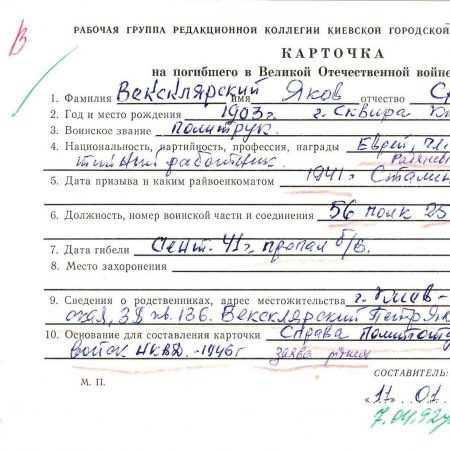 В
РАБОЧАЯ ГРУППА РЕДАКЦИОННОЙ КОЛЛЕГИИ КИЕВСКОЙ ГОРОДСКОЙ
КАРТОЧКА
на погибшего в Великой Отечественной войне
1. Фамилия Векслярский имя Яков отчество
2. Год и место рождения 1903 г. г. Сквира
3. Воинское звание политрук.
4. Национальность, партийность, профессия, награды Еврей, чл.
работник.
5. Дата призыва и каким райвоенкоматом 1941 г Сталин
6. Должность, номер воинской части и соединения 56 полк 25
7. Дата гибели Сент. 41 г, пропал б/в.
8. Место захоронения
9. Сведения о родственниках, адрес местожительства г. Киев-
кв. 136. Векслярский Петр Як
10. Основание для составления карточки Справа Политотд
войск НКВД. -1946 г заява
М. П.
СОСТАВИТЕЛЬ:
„11" 01
7.04.92